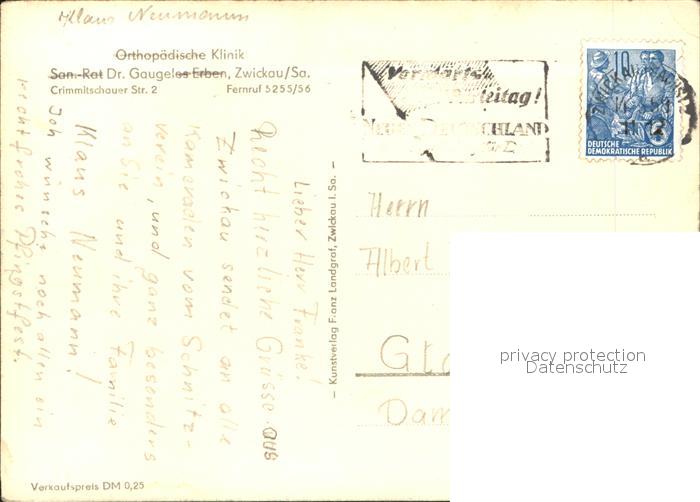 Klaus Neumann
Orthopädische Klinik
San.-Rat Dr. Gaugeles Erben, Zwickau/Sa.
Crimmitschauer Str. 2 Fernruf 5255/56
Lieber Herr Franke!
Recht herzliche Grüsse aus
Zwickau sendet an alle
Kameraden vom Schnitz-
verein, und ganz besonders
an Sie und ihre Familie
Klaus Neumann!
Ich wünsche noch allen ein
recht frohes Pfingstfest.
Verkaufspreis DM 0,25
– Kunstverlag Franz Landgraf, Zwickau i. Sa. –
Vorwärts
Parteitag!
NEUES DEUTSCHLAND
10
DEUTSCHE
DEMOKRATISCHE REPUBLIK
Herrn
Albert
privacy protection
Datenschutz